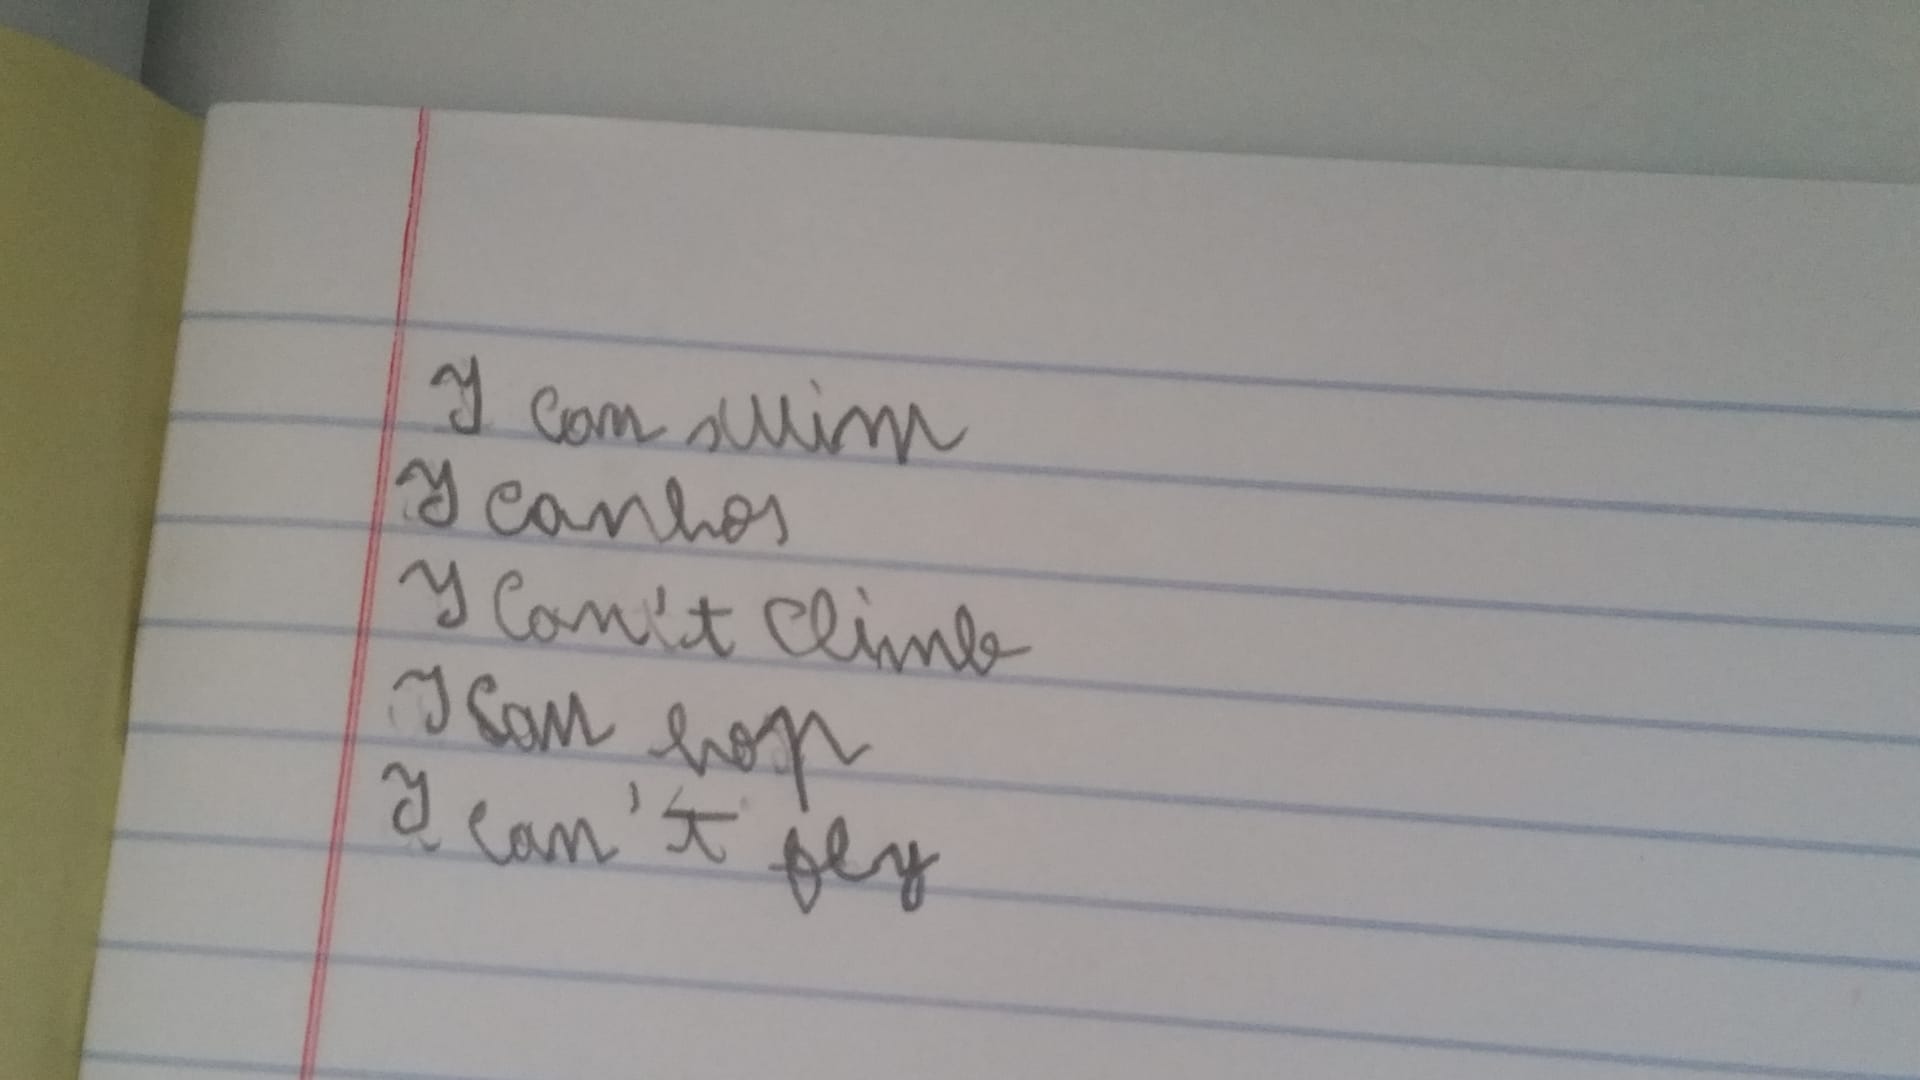 I can swim
I canhos
I can't climb
I can hop
I can't fly